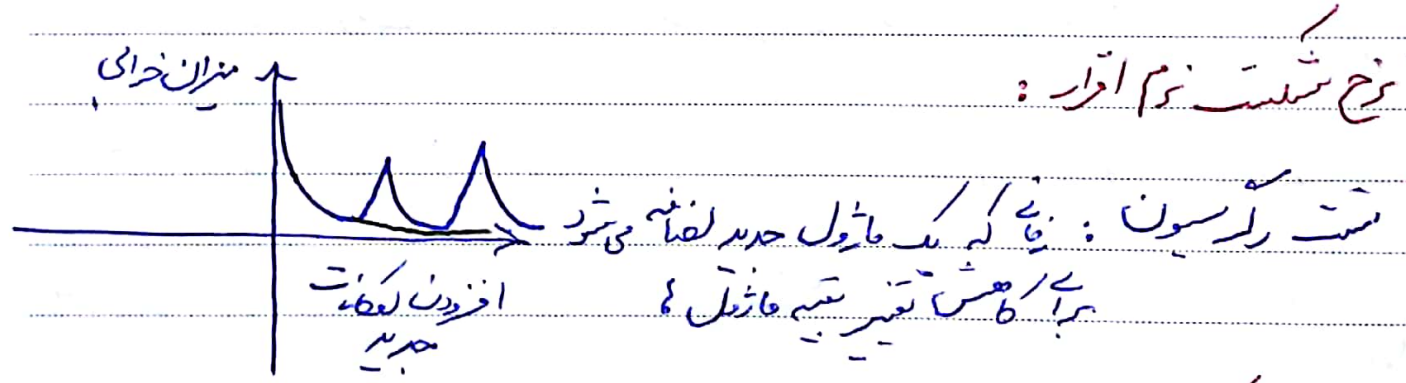 نرخ شکست نرم افزار :
میزان خرابی
تست رگرسیون : زمانی که یک ماژول جدید اضافه می‌شود
برای کاهش تغییر بقیه ماژول ها
افزودن امکانات
جدید